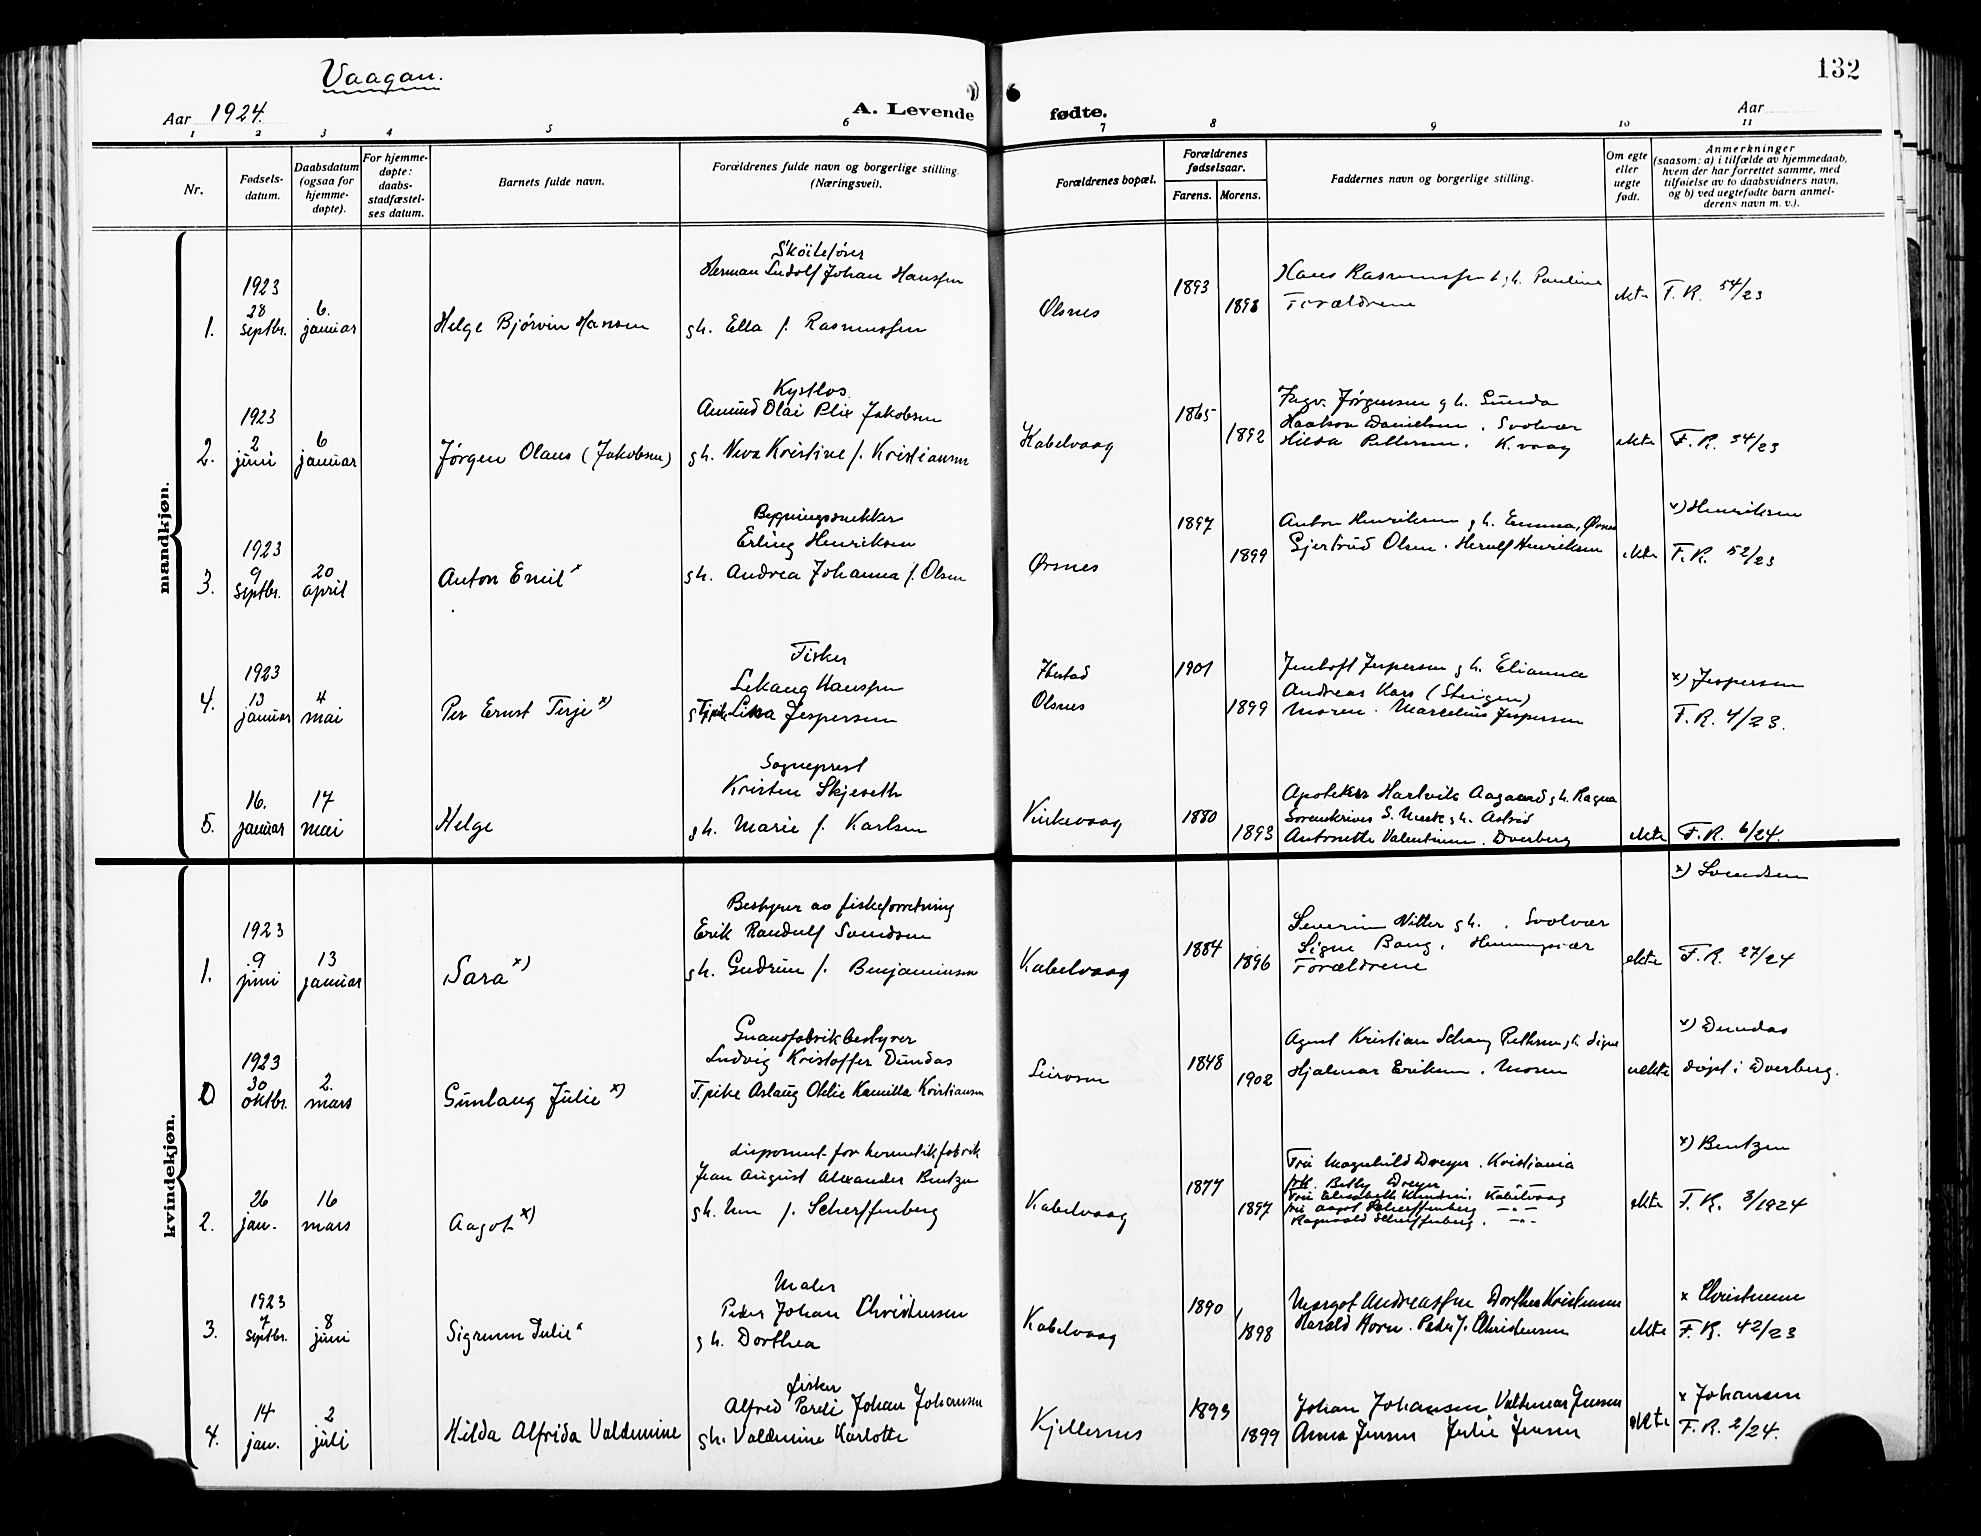 Vaagan.
132
Aar 1924.
A. Levende fødte.
Aar
1 2 3 4 5 6 7 8 9 10 11
Nr.
Fødsels-
datum.
Daabsdatum
(ogsaa for
hjemme-
døpte).
For hjemme-
døpte:
daabs-
stadfæstel-
ses datum.
Barnets fulde navn.
Forældrenes fulde navn og borgerlige stilling.
(Næringsvei).
Forældrenes bopæl.
Forældrenes
fødselsaar.
Farens. Morens.
Faddernes navn og borgerlige stilling.
Om egte
eller
uegte
født.
Anmerkninger
(saasom: a) i tilfælde av hjemmedaab,
hvem der har forrettet samme, med
tilføielse av to daabsvidners navn,
og b) ved uegtefødte barn anmel-
derens navn m. v.).
mandkjøn.
1.
1923
28
septbr.
6.
januar
Helge Bjørvin Hansen
Skøitefører
Herman Ludolf Johan Hanssen
gh. Ella f. Rasmussen
Olsnes
1893
1898
Hans Rasmussen & gh. Pauline
Forældrene
ekte
F.R. 54/23
2.
1923
2
juni
6
januar
Jørgen Olaus (Jakobsen)
Kystlos.
Amund Olai Plix Jakobsen
gh. Neva Kristine f. Kristiansen
Kabelvaag
1865
1892
Ingv. Jørgensen gh. Gunda
Haakon Danielsen, Svolvær
Hilda Pettersen. K.vaag
ekte
F.R. 34/23
3.
1923
9
septbr.
20
april
Anton Emil x
Bygningssnekker
Erling Henriksen
gh. Andrea Johanna f. Olsen
Ørsnes
1897
1899
Anton Henriksen gh. Emma, Ørsnes
Gjertrud Olsen. Herulf Henriksen
ekte
x) Henriksen
F.R. 52/23
4.
1923
13
januar
4
mai
Per Ernst Terje x)
Fisker
Lekang Hanssen
Tpike Lina Jespersen
Ibestad
Olsnes
1901
1899
Jentoft Jespersen gh. Elianna
Andreas Kars (Steigen)
Moren. Marcelius Jespersen
x) Jespersen
F.R. 4/23.
5.
16.
januar
17
mai
Helge
Sogneprest
Kristen Skjeseth
gh. Marie f. Karlsen
Kirkevaag
1880
1893
Apoteker Hartvik Aagaard gh. Ragna
Sorenskriver S. Munk gh. Astrid
Antonette Valentinsen. Dverberg
ekte
F.R. 6/24.
kvindekjøn.
1.
1923
9
juni
13
januar
Sara x)
Bestyrer av fiskeforretning
Erik Randulf Svendsen
gh. Gudrun f. Benjaminsen
Kabelvaag
1884
1896
Severin Nitter gh. , Svolvær
Signe Bang, Henningsvær
Forældrene
ekte
x) Svendsen
F.R. 27/24
0
1923
30
oktbr.
2.
mars
Gunlaug Julie x)
Guanofabrikbestyrer
Ludvig Kristoffer Dundas
T.pike Aslaug Otelie Kamilla Kristiansen
Leirosen
1848
1902
Agent Kristian Schang Pettersen gh. Signe
Hjalmar Eriksen. Moren
uekte
x) Dundas
døpt i Dverberg.
2.
26
jan.
16
mars
Aagot x)
disponent for hermetikfabrik
Jean August Alexander Bentzen
gh. Unn f. Scherffenberg
Kabelvaag
1877
1897
Fru Magnhild Dreyer. Kristiania
frk. Betty Dreyer —"—
Fru Elisabeth Amdrini, Kabelvaag
fru Aagot Scherffenberg —"—
Ragnvald Scherffenberg. —"—
ekte
x) Bentzen
F.R. 3/1924
3.
1923
7
septbr.
8
juni
Sigrunn Julie x
Maler
Peder Johan Christensen
gh. Dorthea
Kabelvaag
1890
1898
Margot Andreassen Dorthea Kristensen
Harald Horn. Peder J. Christensen
ekte
x Christensen
F.R. 42/23
4.
14
jan.
2
juli
Hilda Alfrida Valdemine
fisker
Alfred Pareli Johan Johansen
gh. Valdemine Karlotte
Kjellernes
1893
1899
Johan Johansen Valdemar Jensen
Anna Jensen Julie Jensen
ekte
x Johansen
F.R. 2/24.